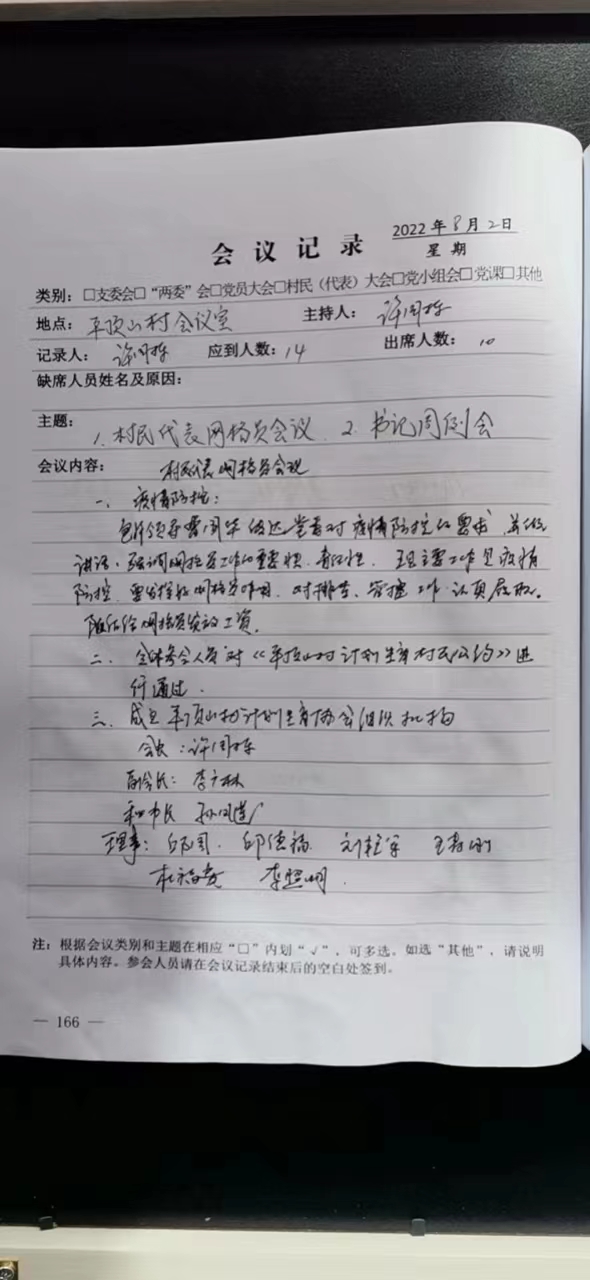 2022年8月2日
会议记录
星期
类别：□支委会□“两委”会□党员大会□村民（代表）大会□党小组会□党课□其他
地点：平顶山村会议室 主持人：许同栋
记录人：许同栋 应到人数：14 出席人数：10
缺席人员姓名及原因：
主题：1.村民代表网格员会议 2.书记周例会
会议内容：村民代表网格员会议
一、疫情防控：
包片领导 传达 对疫情防控的要求，并做
讲话，强调网格员工作的重要性、责任性，现主要工作是疫情
防控，要发挥好网格员作用，对排查、管控工作认真履职。
网格员发放工资。
二、全体参会人员对《平顶山村计划生育村民公约》进
行通过.
三、成立平顶山村计划生育协会组织机构
会长：许同栋
副会长：李广林
秘书长
理事： 邱德福 刘 王
李照明.
注：根据会议类别和主题在相应“□”内划“√”，可多选。如选“其他”，请说明
具体内容。参会人员请在会议记录结束后的空白处签到。
— 166 —